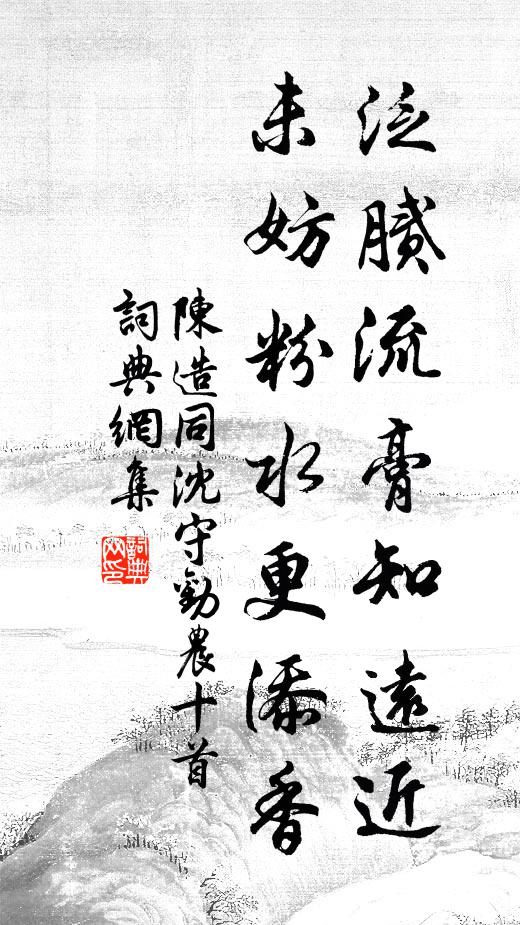 泛膩流膏知遠近
未妨粉水更添香
陳造同沈守勸農十首
詞典網集
詞典网印